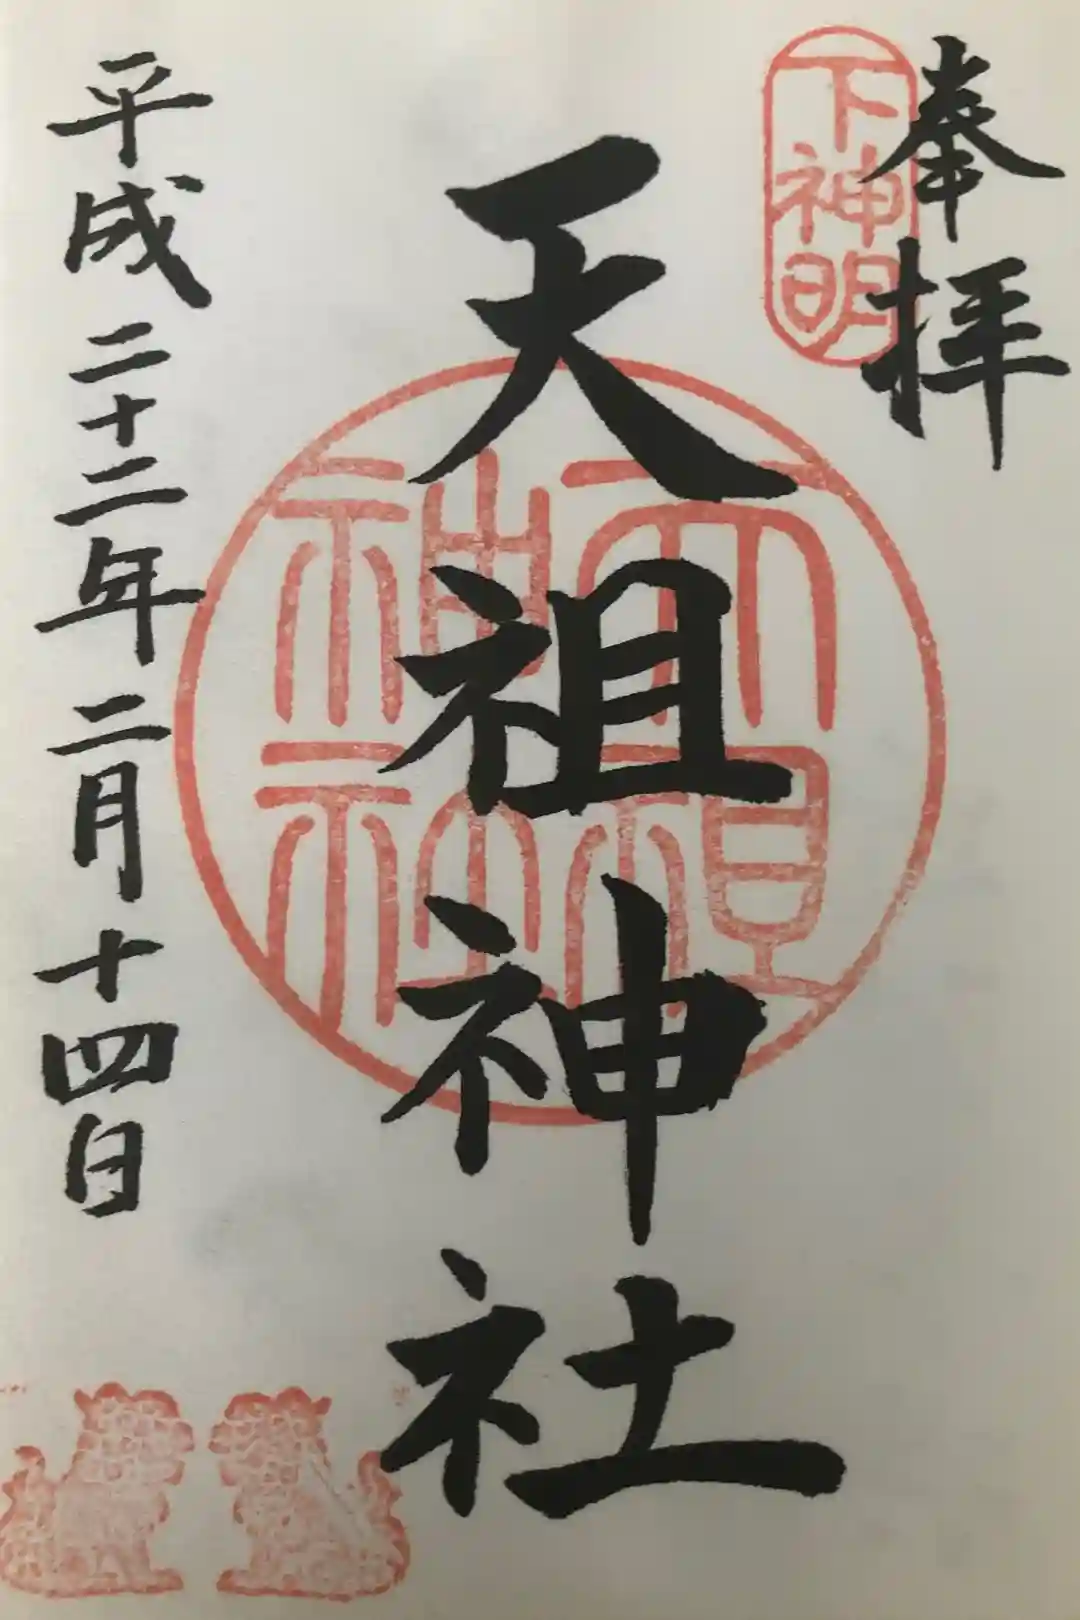 奉拝
下神明
天祖神社
天祖
神社
平成二十二年二月十四日